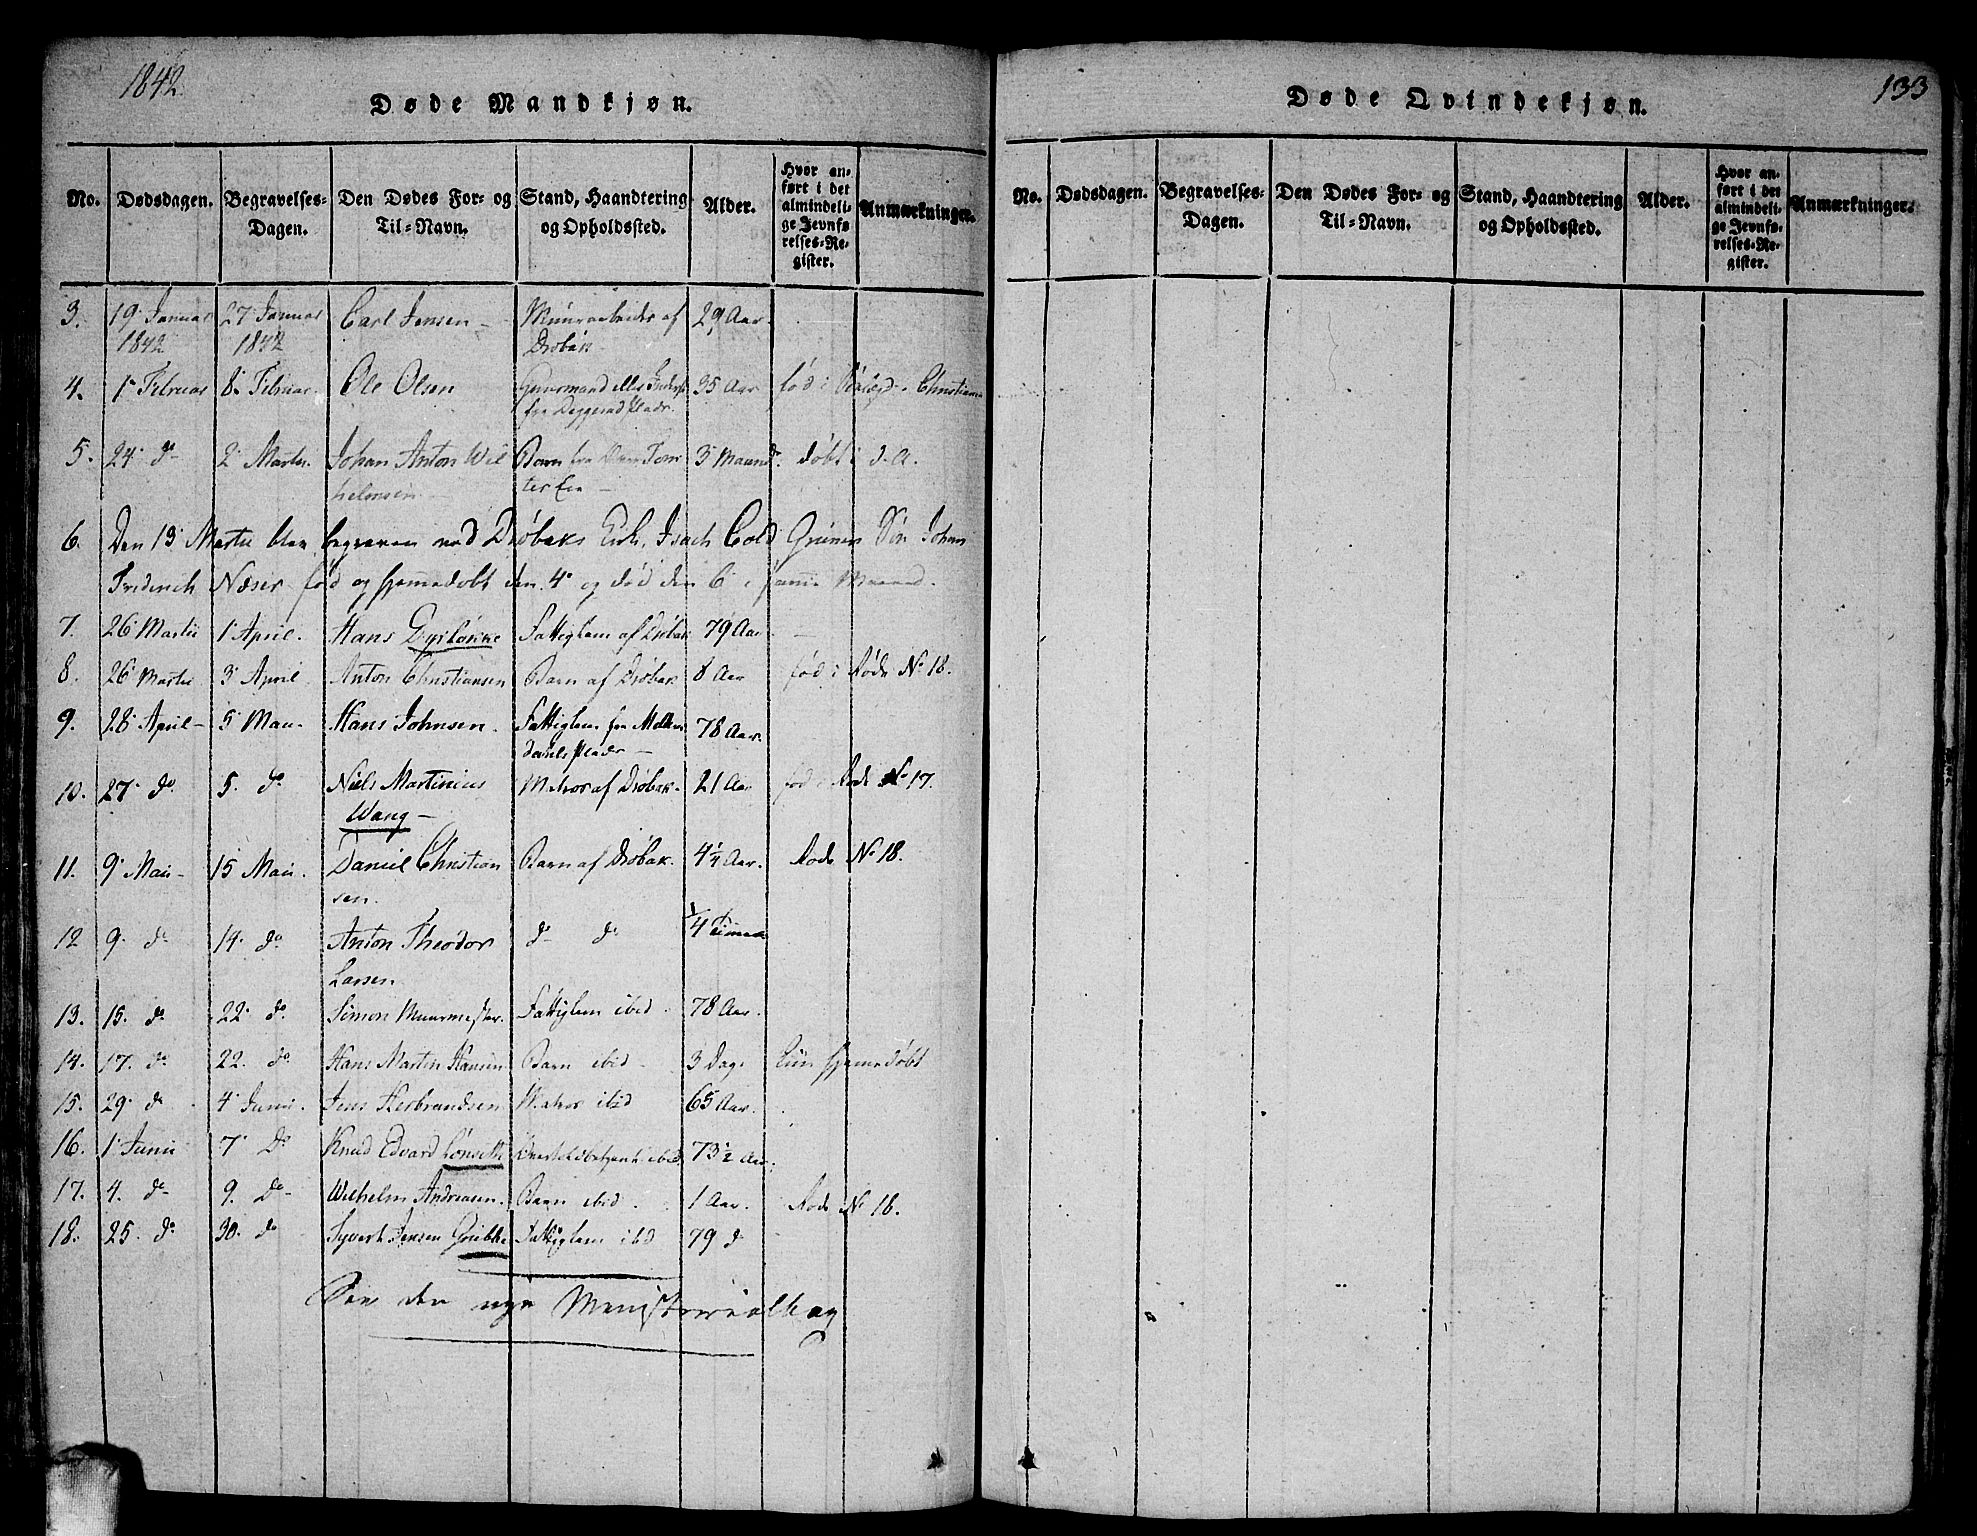 1842.
Døde Mandkjøn.
No. Dødsdagen. Begravelses-Dagen. Den Dødes For- og Til-Navn. Stand, Haandtering og Opholdssted. Alder. Hvor anført i det almindelige Jevnførelses-Register. Anmærkninger.
3. 19 Januar 1842 27 Januar 1842 Carl Jensen - af Drøbak 29 Aar.
4. 1 Februar 8 Februar. Ole Olsen 35 Aar fød i
5. 24 do 2 Martii. Johan Anton Wilhelmsen Barn fra 3 Maaned. døbt i d. A.
6. Den 13 Martii blev begraven ved Drøbaks Kirk. Isach Cold Grüners Søn Johan
Friderich Næser fød og hjemmedøbt den 4 og død den 6 i samme Maaned.
7. 26 Martii 1 April. Hans Dyrløkke Fattiglem af Drøbak 79 Aar
8. 26 Martii 3 April. Anton Christiansen Barn af Drøbak 8 Aar fød i Rode No 18.
9. 28 April - 5 Maii - Hans Johnsen. Fattiglem fra 78 Aar.
10. 27 do 5. do Niels Martinius Wang - Matros af Drøbak - 21 Aar fød i Rode No 17.
11. 9 Maii - 15 Maii. Daniel Christiansen. Barn af Drøbak. 4 1/4 Aar. Rode No 18.
12 9. do 14. do Anton Theodor Larsen do do 1/4 Time
13. 15. do 22 do Simon Muurmester. Fattiglem ibid. 78 Aar.
14. 17. do 22. do Hans Martin Hansen Barn ibid - 3 Dage hjemmedøbt
15. 29 do 4 Junii. Jens Herbrandsen Matros ibid 65 Aar.
16. 1 Junii 7 Do Knud Edvard ibid 73 1/2 Aar.
17. 4. do 9. Do Wilhelm Andreasen. Barn ibid. 1 Aar. Rode No 16.
18. 25. do 30. do Syvert Jensen Fattiglem ibid 79 do
See den nye Ministerialbog
133
Døde Qvindekjøn.
No. Dødsdagen. Begravelses-Dagen. Den Dødes For- og Til-Navn. Stand, Haandtering og Opholdssted. Alder. Hvor anført i det almindelige Jevnførelses-Register. Anmærkninger.